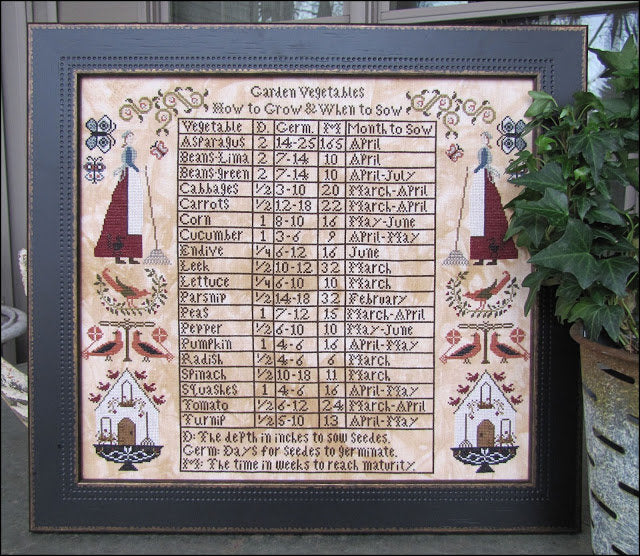 Garden Vegetables
How to Grow & When to Sow
Vegetable D. Germ. M Month to Sow
Asparagus 2 14-25 165 April
Beans-Lima 2 7-14 10 April
Beans-green 2 7-14 10 April-July
Cabbages ½ 3-10 20 March-April
Carrots ½ 12-18 22 March-April
Corn 1 8-10 16 May-June
Cucumber 1 3-6 9 April-May
Endive ¼ 6-12 16 June
Leek ½ 10-12 32 March
Lettuce ¼ 6-10 10 March
Parsnip ½ 14-18 32 February
Peas 1 7-12 15 March-April
Pepper ½ 6-10 10 May-June
Pumpkin 1 4-6 16 April-May
Radish ½ 4-6 6 March
Spinach ½ 10-18 11 March
Squashes 1 4-6 16 April-May
Tomato ½ 6-12 24 March-April
Turnip ½ 5-10 13 April-May
D: The depth in inches to sow Seedes.
Germ: Days for Seedes to germinate.
M: The time in weeks to reach maturity.